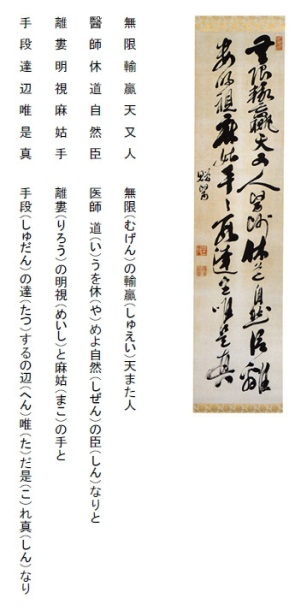 無限輸贏天又人醫師休道自然臣離
婁明視麻姑手手段達辺唯是真
無限輸贏天又人　無限(むげん)の輸贏(しゅえい)天また人
醫師休道自然臣　医師 道(い)うを休(や)めよ自然(しぜん)の臣(しん)なりと
離婁明視麻姑手　離婁(りろう)の明視(めいし)と麻姑(まこ)の手と
手段達辺唯是真　手段(しゅだん)の達(たつ)するの辺(へん)唯(た)だ是(こ)れ真(しん)なり